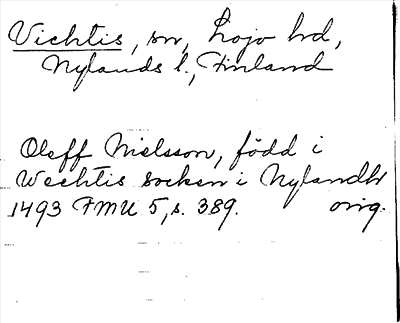 Vichtis, sn, Lojo hd,
Nylands l., Finland
Oleff Nielsson, född i
Wechtis socken i Nylandh
1493 FMU 5, s. 389. orig.